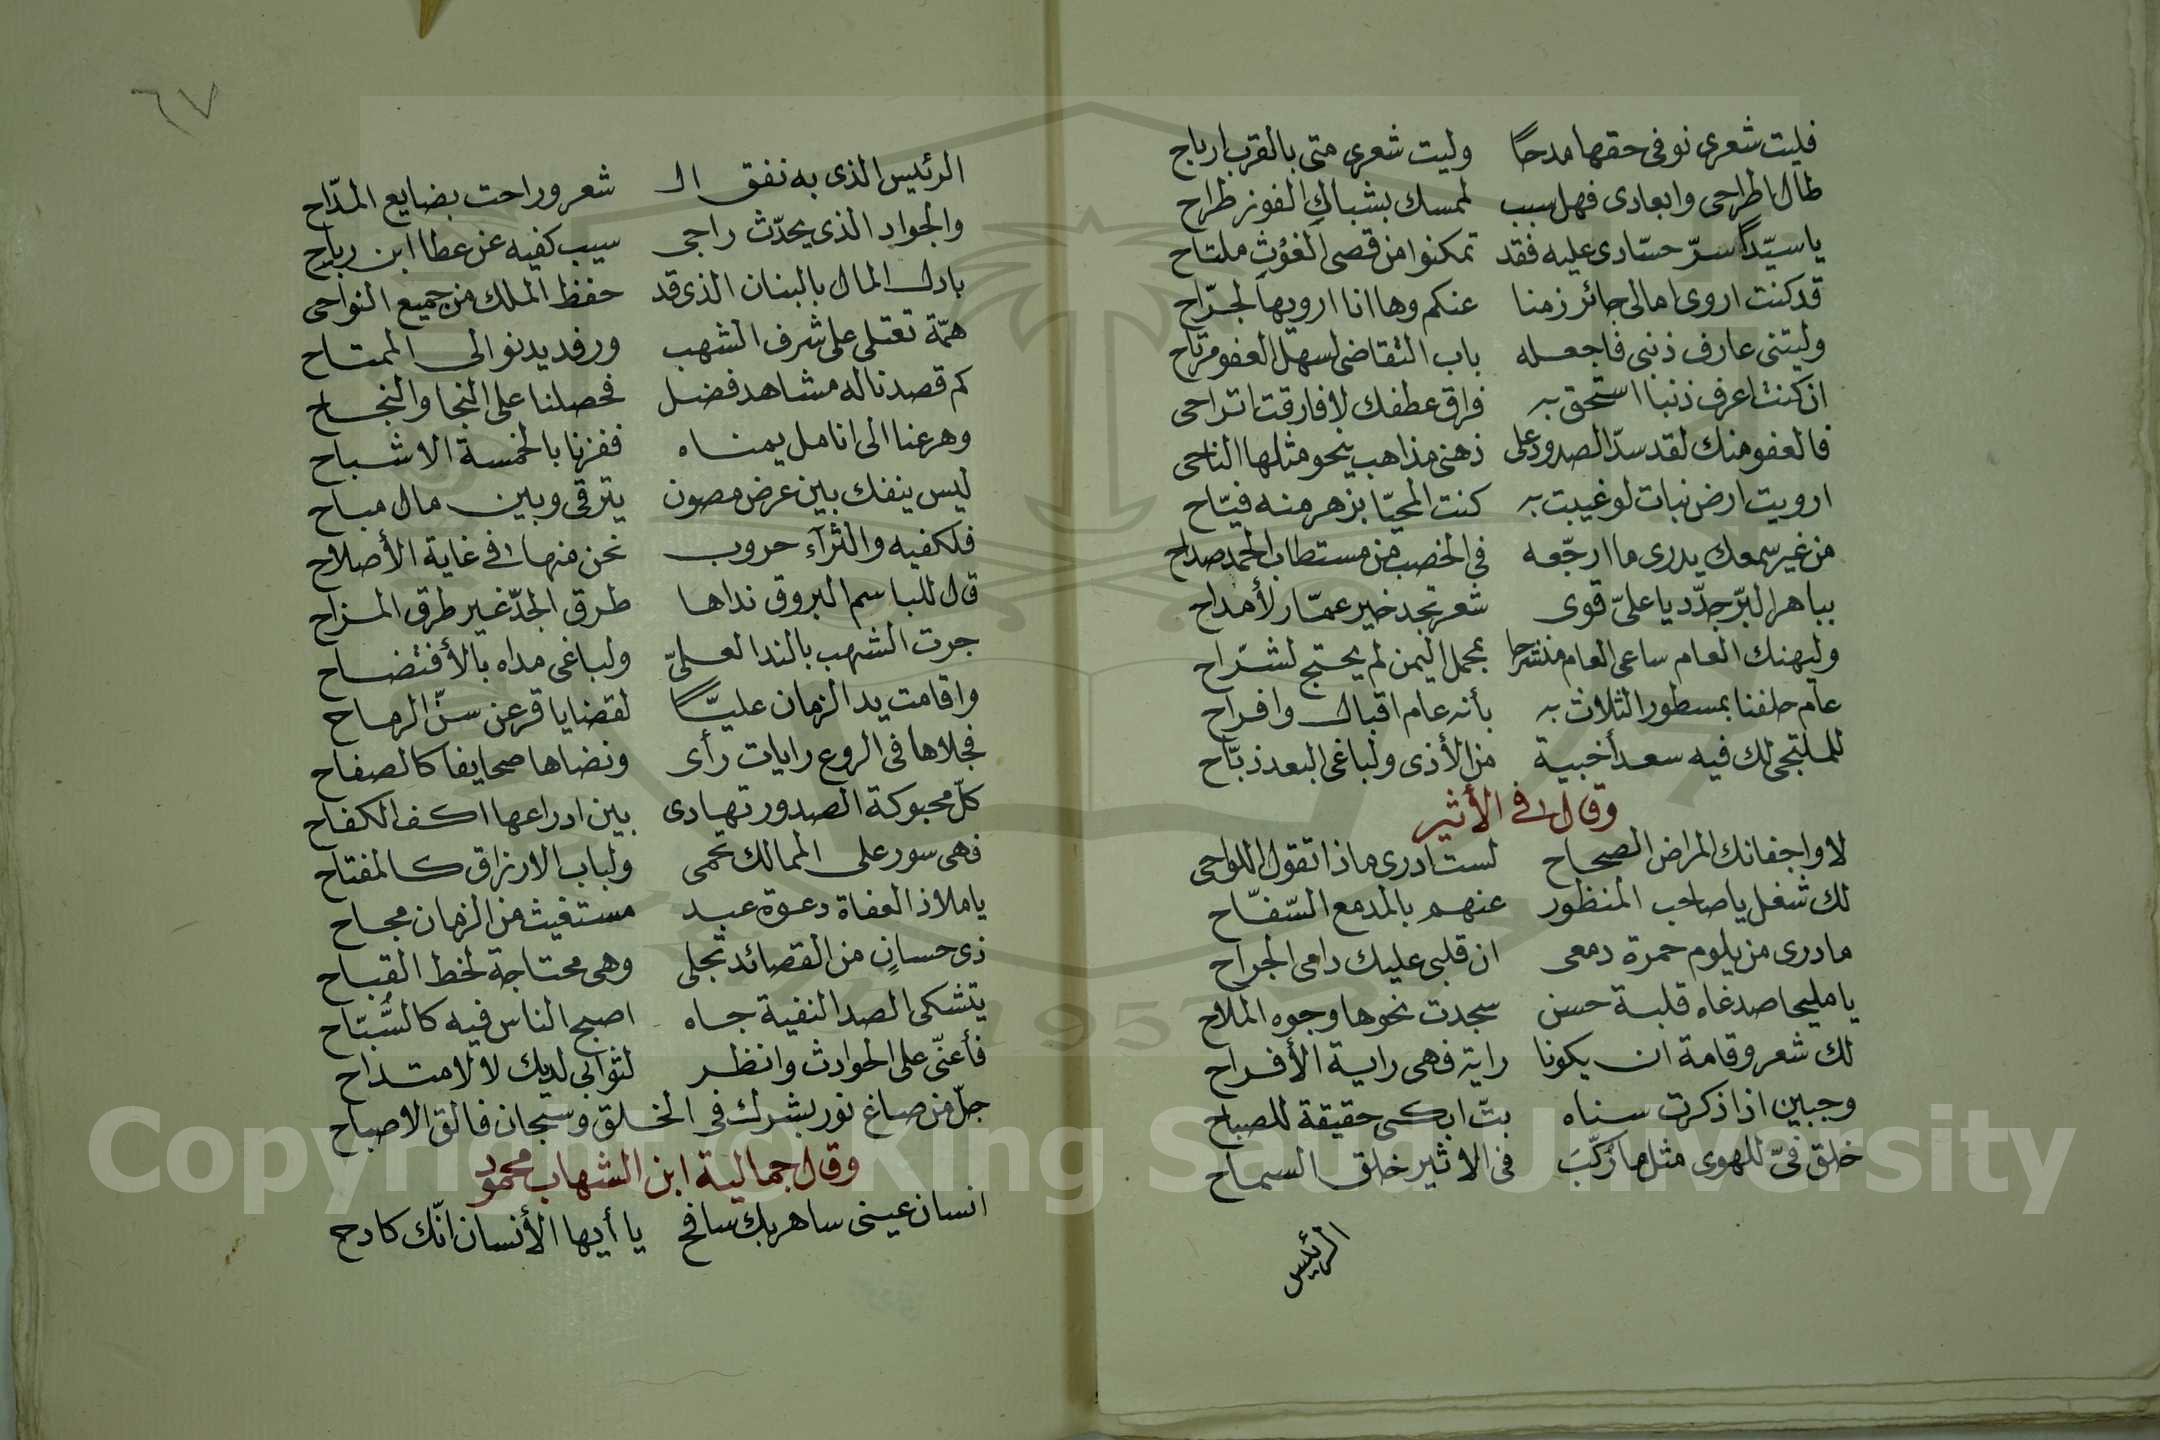 فليت شعرى نوفى حقها مدحا وليت شعرى متى بالقرب ارباح
طال اطراحى وابعادى فهل سبب لممسك بشباك الفوز طراح
يا سيّدًا سرّ حسّادى عليه فقد تمكنوا من قصى الغوث ملتاح
قد كنت اروى امالى جائر زمنا عنكم وها انا ارويها لجرّاح
وليتنى عارف ذنبى فاجعله باب التقاضى لسهل العفو مرتاح
ان كنت اعرف ذنبا استحق به فراق عطفك لا فارقت اتراحى
فالعفو منك لقد سدّ الصدود على ذهنى مذاهب ينحو مثلها الناحى
ارويت ارض نبات لو غيبت به كنت المحيّا بزهر منه فيّاح
من غير سمعك يدرى ما ارجّعه فى الخصب من مستطاب الحمد صداح
بباهر البرّ جدّد يا علىّ قوى شعر تجد خير عمّار لأمداح
وليهنك العام ساعى العام منشرحا بمجمل اليمن لم يحتج لشرّاح
عام حلفنا بمسطور الثلاث به بأنه عام اقبال وافراح
للملتجى لك فيه سعد أخبية من الأذى ولباغى البعد ذبّاح
وقال فى الأثير
لا واجفانك المراض الصحاح لست ادرى ماذا تقول اللواحى
لك شغل يا صاحب المنظور عنهم بالمدمع السّفّاح
ما درى من يلوم حمرة دمعى ان قلبى عليك دامى الجراح
يا مليحا صدغاه قلبة حسن سجدت نحوها وجوه الملاح
لك شعر وقامة ان يكونا راية فهى راية الأفراح
وجبين اذا ذكرت سناه بتّ ابكى حقيقة للصباح
خلق فىّ للهوى مثل ما رُكّبَ فى الاثير خلق السماح
الرئيس
٦٧
الرئيس الذى به نفق الـ شعر وراحت بضايع المدّاح
والجواد الذى يحدّث راجى سيب كفيه عن عطا ابن رباح
بادل المال بالبنان الذى قد حفظ الملك من جميع النواحى
همّة تعتلى على شرف الشهب ورفد يدنو الى الممتاح
كم قصدنا له مشاهد فضل فحصلنا على النجا والنجاح
وهرعنا الى انامل يمناه ففزنا بالخمسة الاشباح
ليس ينفك بين عرض مصون يترقى وبين مال مباح
فلكفيه والثرآء حروب نحن منها فى غاية الأصلاح
قال للباسم البروق نداها طرق الجدّ غير طرق المزاح
جرت الشهب بالندا لعلىّ ولباغى مداه بالأفتضاح
واقامت يد الزمان عليًّا لقضايا قرعن سنّ الرماح
فجلاها فى الروع رايات رأى ونضاها صحايفا كالصفاح
كلّ محبوكة الصدور تهادى بين ادراعها اكف الكفاح
فهى سور على الممالك تحمى ولباب الارزاق كالمفتاح
يا ملاذ العفاة دعوة عبد مستغيث من الزمان مجاح
ذى حسانٍ من القصائد تجلى وهى محتاجة لخط القباح
يتشكى الصد النفية جاه اصبح الناس فيه كالسُّبّاح
فأعنّى على الحوادث وانظر لثوابى لديك لا لامتداح
جلّ من صاغ نور بشرك فى الخلق وسبحان فالق الاصباح
وقال جمالية ابن الشهاب محمود
انسان عينى ساهر بك سافح يا أيها الأنسان انّك كادح
Copyright © King Saud University
1957